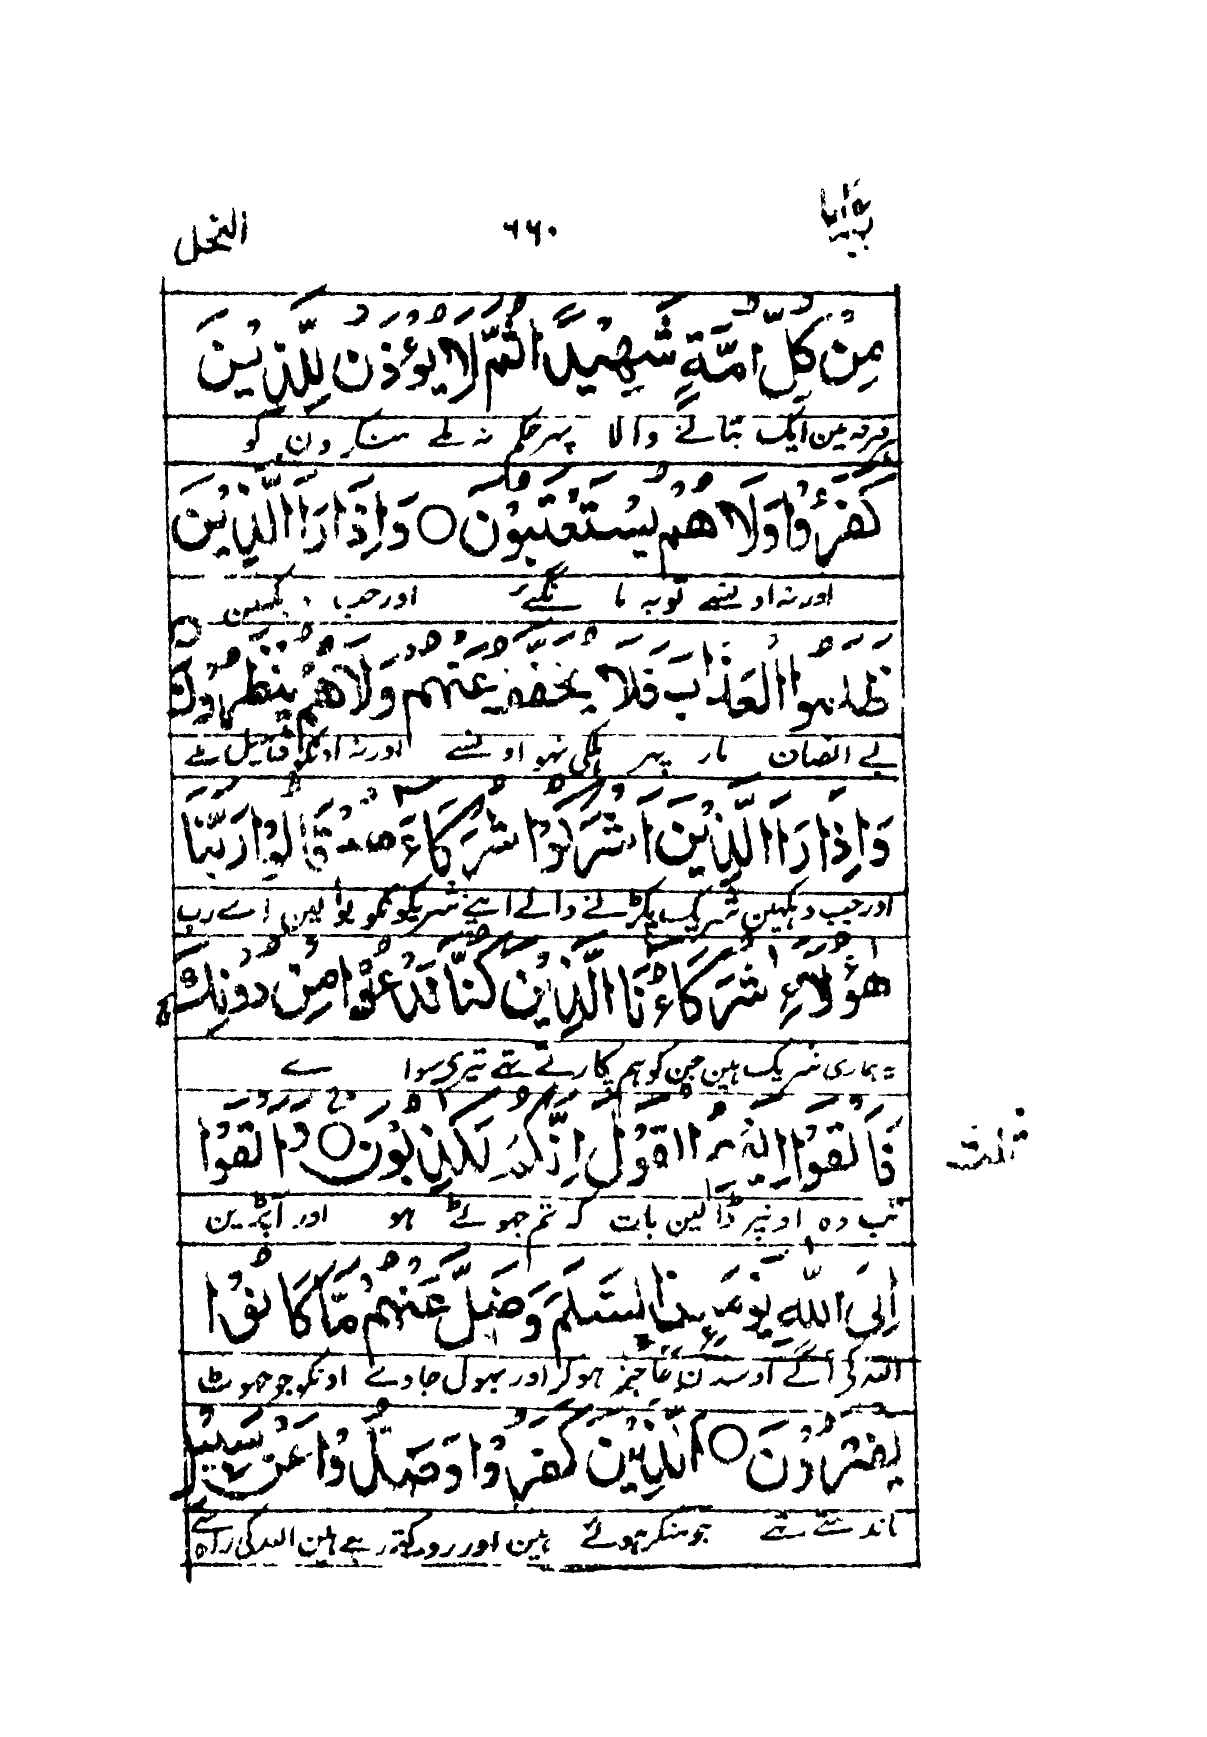 النحل ۶۶۰ ربما
مِنْ كُلِّ اُمَّةٍ شَهِيْدًا ثُمَّ لَا يُؤْذَنُ لِلَّذِيْنَ
ہر فرقہ مین ایک بتانے والا پہر حکم نہ ملے منکرون کو
كَفَرُوْا وَلَا هُمْ يُسْتَعْتَبُوْنَ ○ وَاِذَا رَاَ الَّذِيْنَ
اور نہ اونسے توبہ مانگیے اور جب دیکہین
ظَلَمُوا الْعَذَابَ فَلَا يُخَفَّفُ عَنْهُمْ وَلَا هُمْ يُنْظَرُوْنَ ○
بے انصاف مار پہر ہلکی نہو اونسے اور نہ اونکو ڈہیل ملے
وَاِذَا رَاَ الَّذِيْنَ اَشْرَكُوْا شُرَكَاءَهُمْ قَالُوْا رَبَّنَا
اور جب دیکہین شریک پکڑنے والے اپنے شریکونکو بولین اے رب
هٰؤُلَاءِ شُرَكَاؤُنَا الَّذِيْنَ كُنَّا نَدْعُوْا مِنْ دُوْنِكَ ج
یہ ہماری شریک ہین جن کو ہم پکارتے تہے تیری سوا ے
فَاَلْقَوْا اِلَيْهِمُ الْقَوْلَ اِنَّكُمْ لَكٰذِبُوْنَ ○ وَاَلْقَوْا
ثلث
تب وہ اونپر ڈالین بات کہ تم جہوٹے ہو اور آپڑین
اِلَى اللّٰهِ يَوْمَئِذِ ࣙالسَّلَمَ وَضَلَّ عَنْهُمْ مَّا كَانُوْا
اللہ کے آگے اوسدن عاجز ہوکر اور بہول جاوے اونکو جو جہوٹ
يَفْتَرُوْنَ ○ اَلَّذِيْنَ كَفَرُوْا وَصَدُّوْا عَنْ سَبِيْلِ
باندہتے تہے جو منکر ہوئے ہین اور روکتے رہے ہین اللہ کی راہ سے